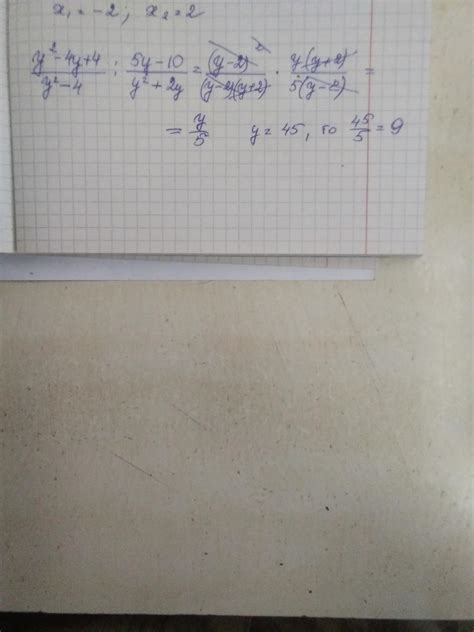 x₁ = -2; x₂ = 2
(y² - 4y + 4)/(y² - 4) : (5y - 10)/(y² + 2y) = (y-2)²/((y-2)(y+2)) · y(y+2)/(5(y-2)) =
= y/5 y = 45, то 45/5 = 9